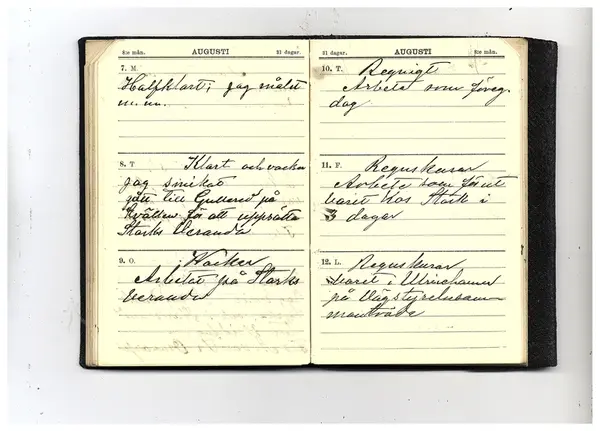 8:e mån. AUGUSTI 31 dagar.
7. M.
Halfklart; jag målat
m. m.
8. T. Klart och vacker
jag snikat
gått till Gullered på
kvällen för att upprätta
Starks Veranda
9. O. Vacker
Arbetat på Starks
Veranda
31 dagar. AUGUSTI 8:e mån.
10. T. Regnigt
Arbete som föreg.
dag
11. F. Regnskurar
Arbete som förut
varit hos Stark i
3 dagar
12. L. Regnskurar
varit i Ulricehamn
på Vägstyrelsesam-
manträde